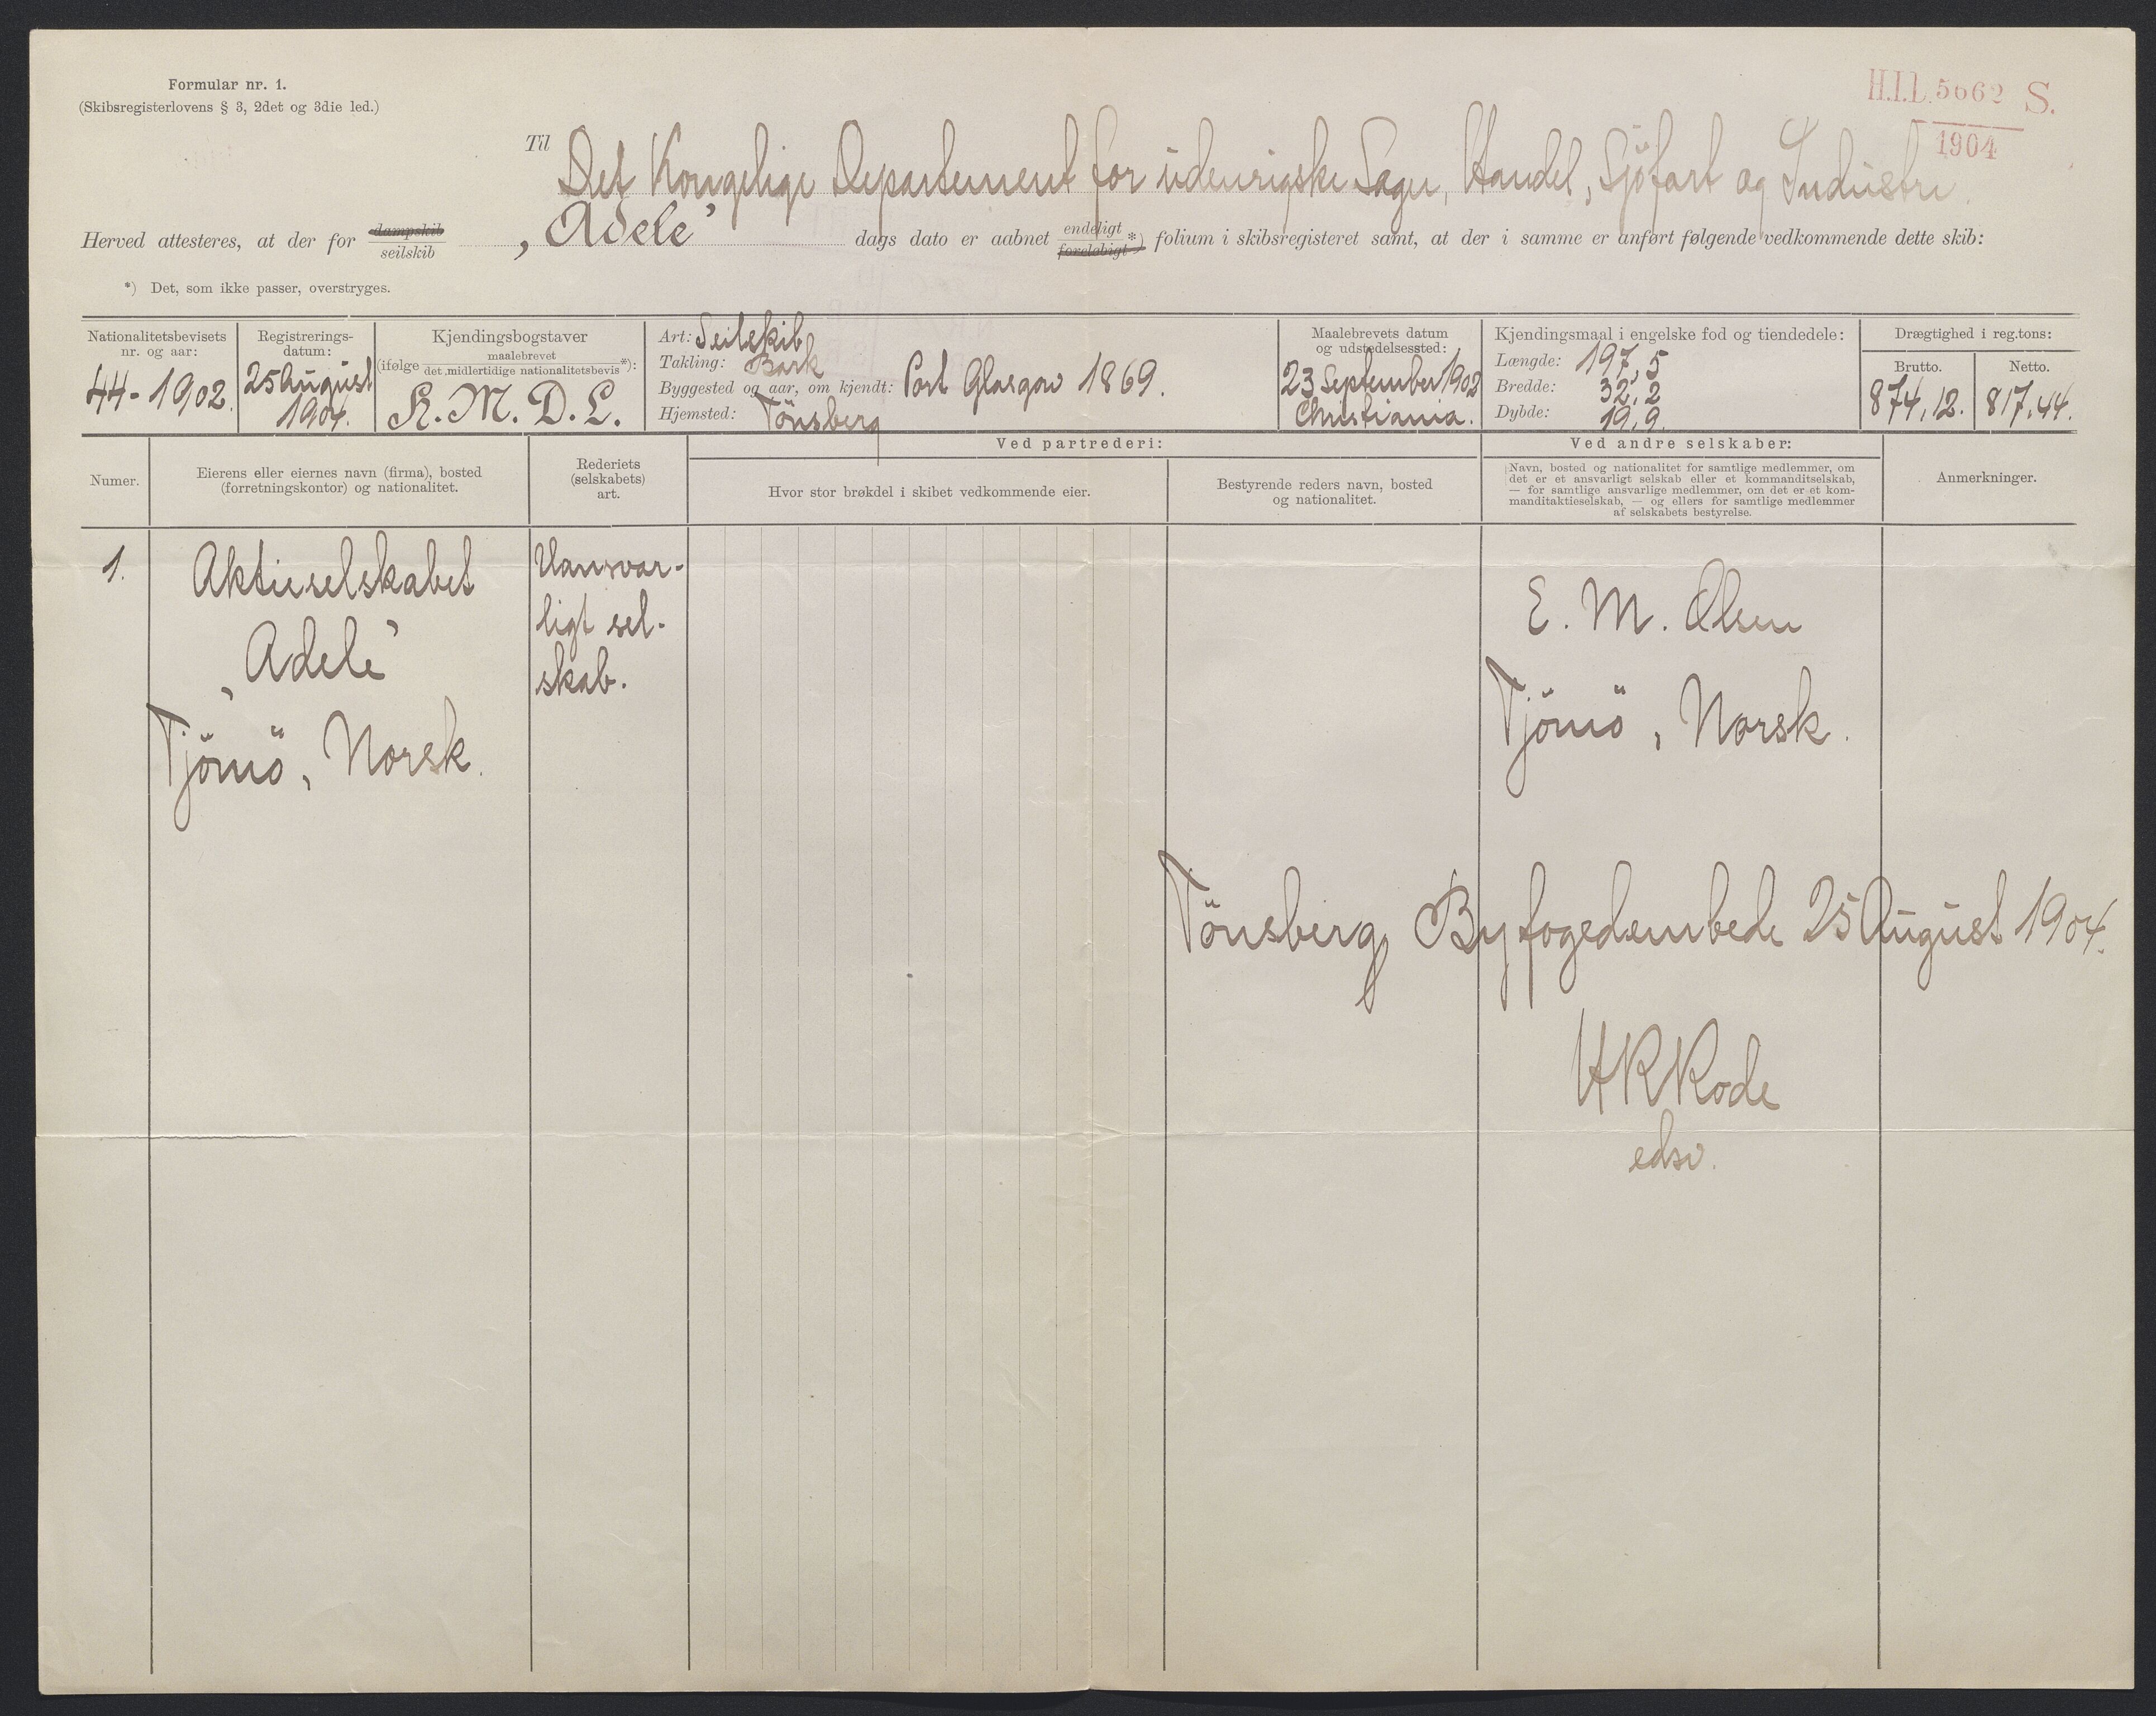 Formular nr. 1.
(Skibsregisterlovens § 3, 2det og 3die led.)
H.I.L. 5662 S.
1904
Til Det Kongelige Departement for udenrigske Sager, Handel, Sjöfart og Industri.
Herved attesteres, at der for dampskib seilskib „Adele” dags dato er aabnet endeligt foreløbigt *) folium i skibsregisteret samt, at der i samme er anført følgende vedkommende dette skib:
*) Det, som ikke passer, overstryges.
Nationalitetsbevisets nr. og aar:
44-1902.
Registrerings-datum:
25 August
1904.
Kjendingsbogstaver
(ifølge maalebrevet det midlertidige nationalitetsbevis *):
K. M. D. L.
Art: Seilskib
Takling: Bark
Byggested og aar, om kjendt: Port Glasgow 1869.
Hjemsted: Tönsberg
Maalebrevets datum
og udstedelsessted:
23 September 1902
Christiania.
Kjendingsmaal i engelske fod og tiendedele:
Længde: 197,5
Bredde: 32,2
Dybde: 19,9.
Drægtighed i reg.tons:
Brutto.
874,12.
Netto.
817,44.
Numer.
Eierens eller eiernes navn (firma), bosted
(forretningskontor) og nationalitet.
Rederiets
(selskabets)
art.
Ved partrederi:
Hvor stor brøkdel i skibet vedkommende eier.
Bestyrende reders navn, bosted
og nationalitet.
Ved andre selskaber:
Navn, bosted og nationalitet for samtlige medlemmer, om
det er et ansvarligt selskab eller et kommanditselskab,
— for samtlige ansvarlige medlemmer, om det er et kom-
manditaktieselskab, — og ellers for samtlige medlemmer
af selskabets bestyrelse.
Anmerkninger.
1.
Aktieselskabet
„Adele”
Tjömö, Norsk.
Uansvar-
ligt sel-
skab.
E. M. Olsen
Tjömö, Norsk.
Tönsberg Byfogedembede 25 August 1904.
HRKode
edsv.